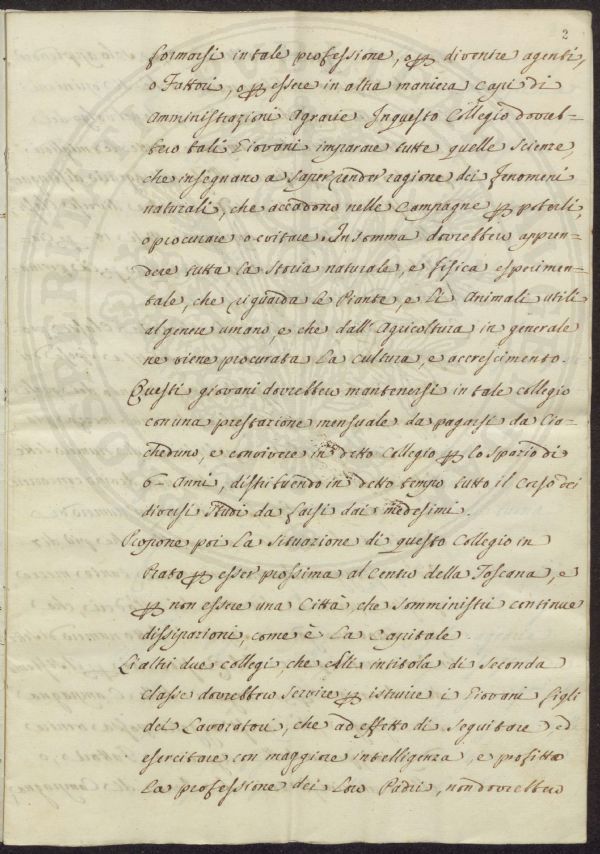 2
formarsi in tale professione, o p divenire agenti,
o Fattori, o p essere in altra maniera Capi di
Amministrazioni Agrarie. In questo Collegio dovreb=
bero tali Giovani imparare tutte quelle scienze,
che insegnano a saper render ragione dei Fenomeni
naturali, che accadono nelle Campagne p poterli,
o procurare o evitare. In somma dovrebbero appren=
dere tutta la storia naturale, e fisica esperimen=
tale, che riguarda le Piante, e li Animali utili
al genere umano, e che dall'Agricoltura in generale
ne viene procurata la cultura, e accrescimento.
Questi giovani dovrebbero mantenersi in tale collegio
con una prestazione mensuale da pagarsi da Cia=
cheduno, e convivere in detto Collegio p lo spazio di
6 = Anni, distribuendo in detto tempo tutto il Corso dei
diversi studi da farsi dai medesimi.
Propone poi la situazione di questo Collegio in
Prato p esser prossima al Centro della Toscana, e
p non essere una Città, che somministri continue
dissipazioni, come è la Capitale.
Li altri due collegi, che Elli intitola di seconda
Classe dovrebbero servire p istruire i Giovani Figli
dei Lavoratori, che ad effetto di seguitare ed
esercitare con maggiore intelligenza, e profitto
la professione dei Loro Padri, non dovrebbero